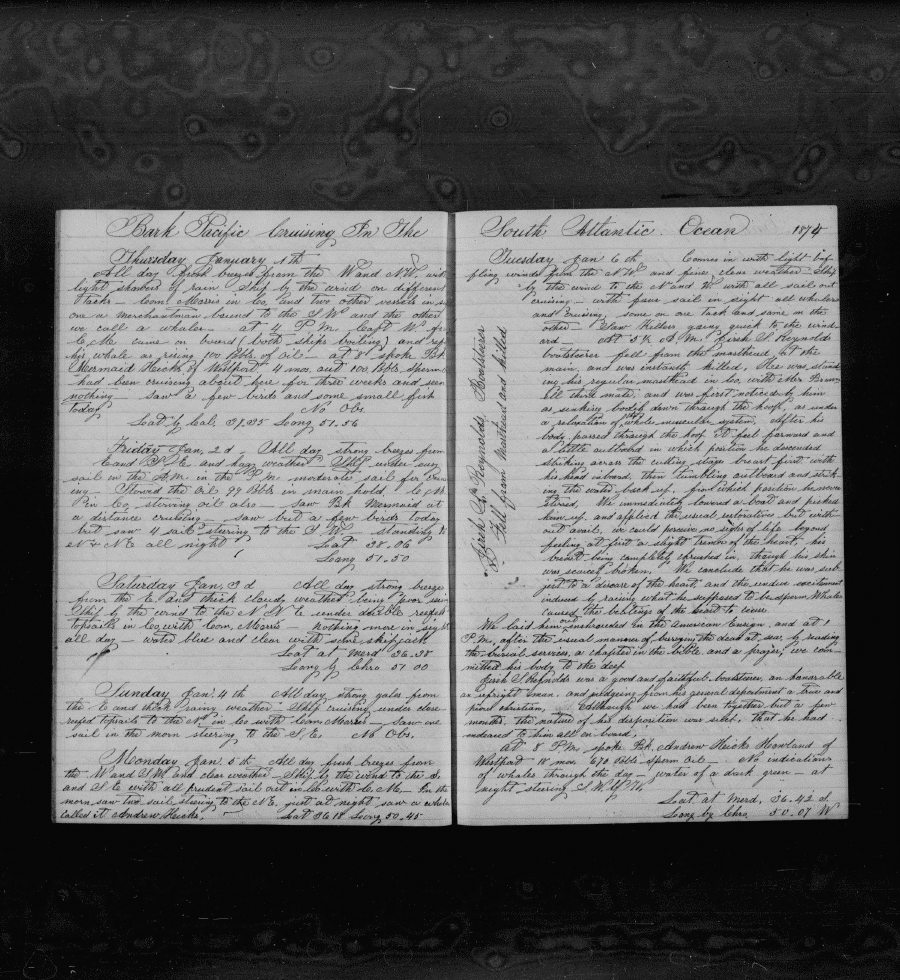 Bark Pacific Cruising In The
Thursday January 1th
All day fresh breezes from the W and NW, with
light showers of rain Ship by the wind on different
tacks - Com! Morris in Co, and two other vessels in
one a merchantman bound to the S W and the other
we call a whaler - at 4 P M Capt W
C M came on board (both ships boiling) and
his whale as rising 100 Bbls of oil - at 8 spoke Bk
Mermaid Heick of Westport 4 mos, out 100 Bbls sperm
had been cruising about here for three weeks and seen
nothing saw a few birds and some small fish
today No Obs.
Lat by Cal, 37.35 Long 51.56
Friday Jan, 2 d, All day strong breezes from
E and N, E and hazy weather Ship under easy
sail in the A.M. in the P M moderate sail
Stowed the oil 99 Bbls in main hold, C M
in Co stowing oil also - Saw Bk Mermaid at
a distance cruising - saw but a few birds today
but saw 4 sail steering to the S W - Standing
N & N E all night Lat 38.06
Long 51.50
Saturday Jan, 3 d All day strong breezes
from the E and thick cloudy weather being
Ship by the wind to the N N E under double reefed
topsails in Co with Com, Morris - Nothing more in sight
all day - water blue and clear with some skipjack
Lat at Merd 36.38
Long by Chro 51 00
Sunday Jan, 4 th All day strong gales from
the E and thick rainy weather - Ship cruising under close
reefed topsails to the Nd in Co with Com Morris - Saw one
sail in the morn steering to the S, E No Obs,
Monday Jan, 5 th All day fresh breezes from
the W and S W and clear weather - Ship by the wind to the S.
and S E with all prudent sail out in Co with C, M, - In the
morn saw two sail steering to the N E, just at night saw a
called it Andrew Hicks, Lat 36 18 Long 50.45
South Atlantic Ocean 1874
Tuesday Jan 6 th Comes in with light baf-
fling winds from the N Wd and fine, clear weather Ship
by the wind to the N and W with all sail out
cruising - with five sail in sight all whalers
and cruising, some on one tack and some on the
other Saw Killers going quick to the wind-
ard At 5½ A M, Fish S. Reynolds
boatsteerer fell from the masthead, at the
main, and was instantly killed, Hee was stand
ing his regular masthead in Co, with Mr
Ell third mate, and was first noticed by him
as sinking bodily down through the hoop, as under
a relaxation of the whole muscular system, After his
body passed through the hoop It fell forward and
a little outboard in which position he descended
striking across the cutting stage breast first with
his head inboard, then tumbling outboard and strik
ing the water back up, from which position he never
stirred, We immediately lowered a boat and picked
him up, and applied the usual restorative but with
out avail, we could perceive no signs of life beyond
feeling at first a slight tremor of the heart, his
breast being completely crushed in, though his skin
was scarcely broken, We conclude that he was sub-
ject to a disease of the heart, and the undue excitement
induced by raising what he supposed to be sperm Whales
caused the beatings of the heart to cease
We laid him out enshrouded in the American Ensign, and at 1
P M, after the usual manner of burying the dead at sea, by reading
the burial services, a chapter in the bible, and a prayer, we com-
mitted his body to the deep
Fish S Reynolds was a good and faithful boatsteerer, an honorable
an upright man, and judging from his general deportment a true and
pious christian, Although we had been together but a few
months the nature of his disposition was such, that he had
endeared to him all on board,
At 8 P M, spoke Bk, Andrew Hicks Howland of
Westport 18 mos 670 Bbls sperm oil - No indications
of whales through the day - water of a dark green - at
night steering S W
Lat at Merd, 36.42 S
Long by Chro 50.07 W
Fish S. Reynolds, Boatsteerer
Fell from Masthead and killed